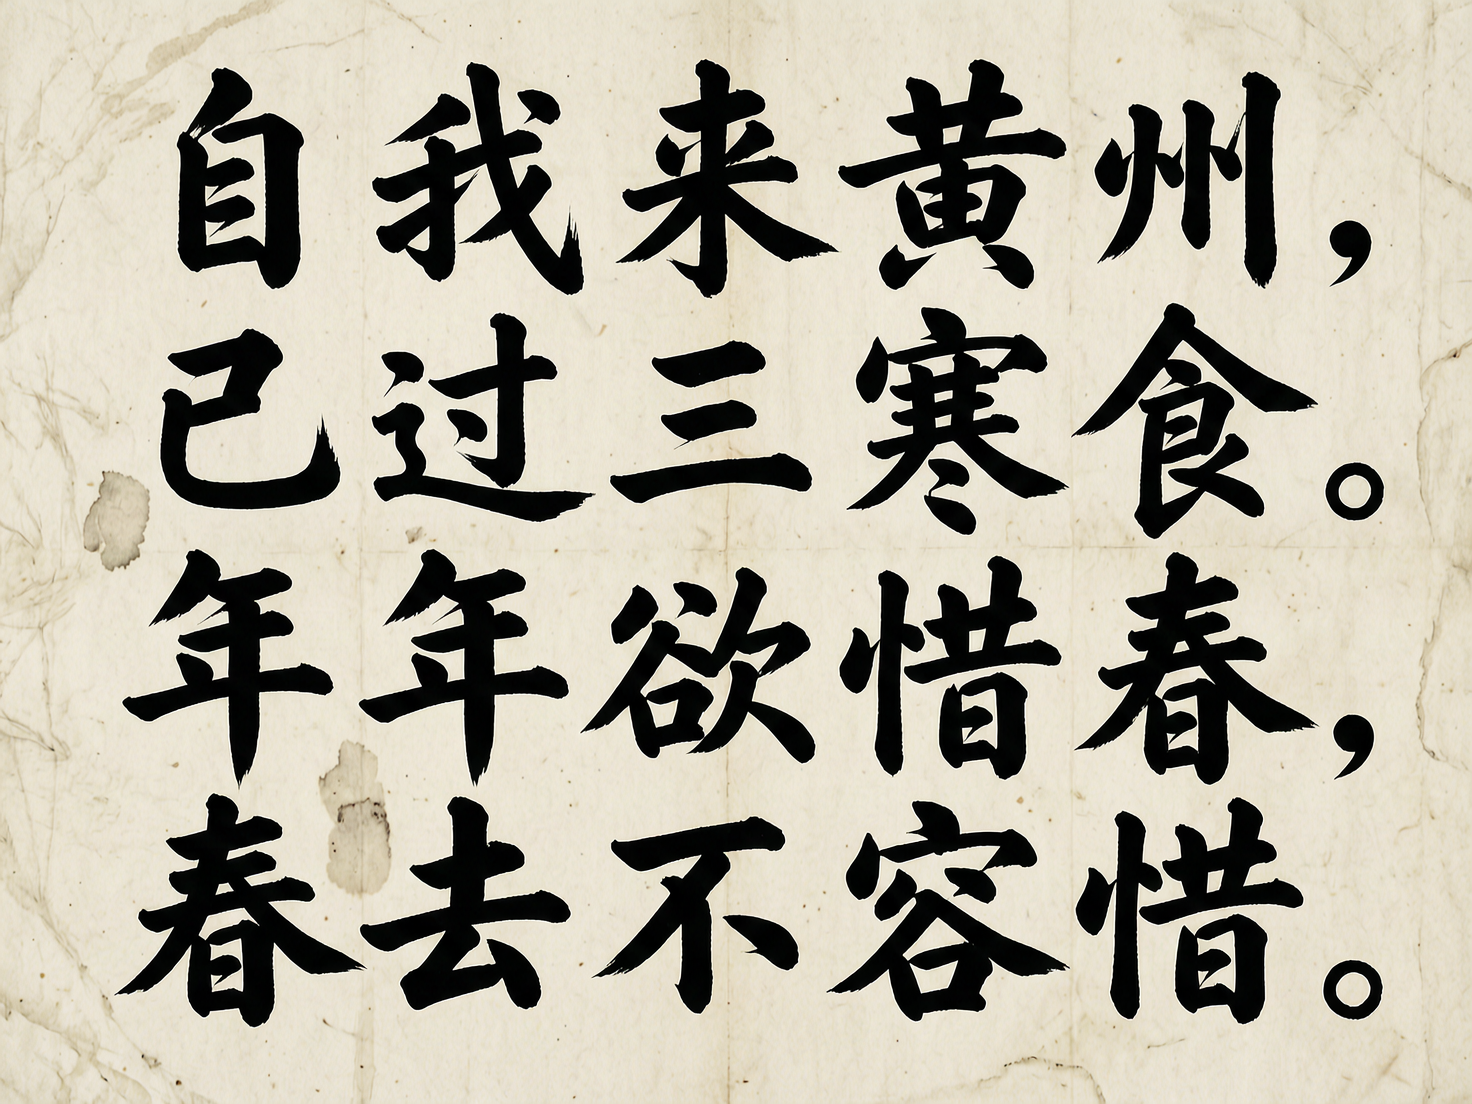 自我来黄州，
已过三寒食。
年年欲惜春，
春去不容惜。